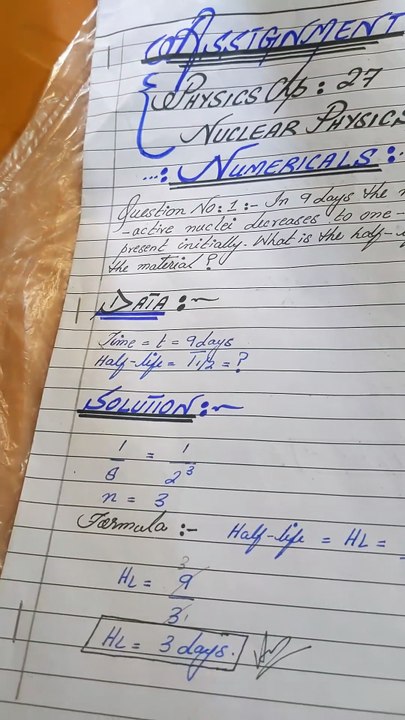 ASSIGNMENT
PHYSICS Chp: 27
NUCLEAR PHYSICS
...: NUMERICALS :.
Question No: 1 :- In 9 days the
-active nuclei decreases to one-
present initially. What is the half-
the material?
DATA :-
Time = t = 9 days
Half-life = T1/2 = ?
SOLUTION :-
1/8 = 1/2³
n = 3
Formula :- Half-life = HL =
HL = 9/3
HL = 3 days.